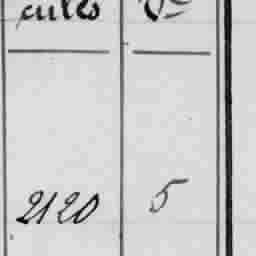 cules
2120 5